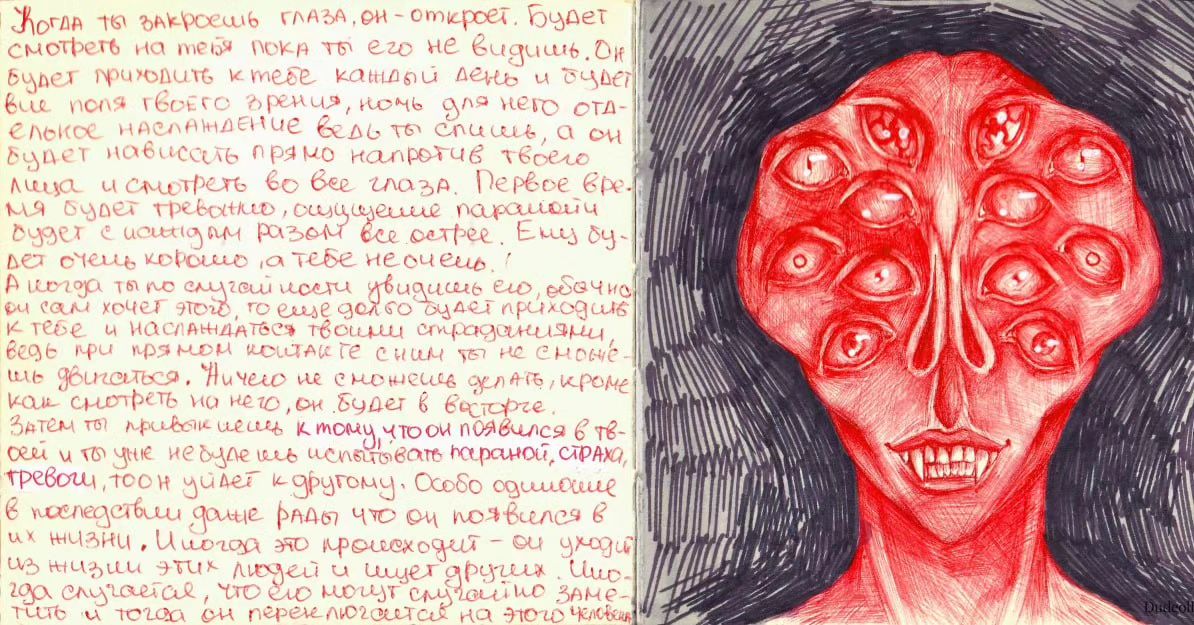 Когда ты закроешь глаза, он - откроет. Будет
смотреть на тебя пока ты его не видишь. Он
будет приходить к тебе каждый день и будет
вне поля твоего зрения, ночь для него отд-
елькое наслаждение ведь ты спишь, а он
будет нависать прямо напротив твоего
лица и смотреть во все глаза. Первое вре-
мя будет тревожно, ощущение паранойи
будет с каждым разом все острее. Ему бу-
дет очень хорошо, а тебе не очень.
А когда ты по случайности увидишь его, обычно
он сам хочет этого, то еще долго будет приходить
к тебе и наслаждаться твоими страданиями,
ведь при прямом контакте с ним ты не сможе-
шь двигаться. Ничего не сможешь делать, кроме
как смотреть на него, он будет в восторге.
Затем ты привыкнешь к тому, что он появился в тв-
оей и ты уже не будешь испытывать параной, страха,
тревоги, то он уйдет к другому. Особо одинокие
в последствии даже рады что он появился в
их жизни. Иногда это происходит - он уходит
из жизни этих людей и ищет других. Ино-
гда случается, что его могут случайно заме-
тить и тогда он переключается на этого человека
Dudcoll